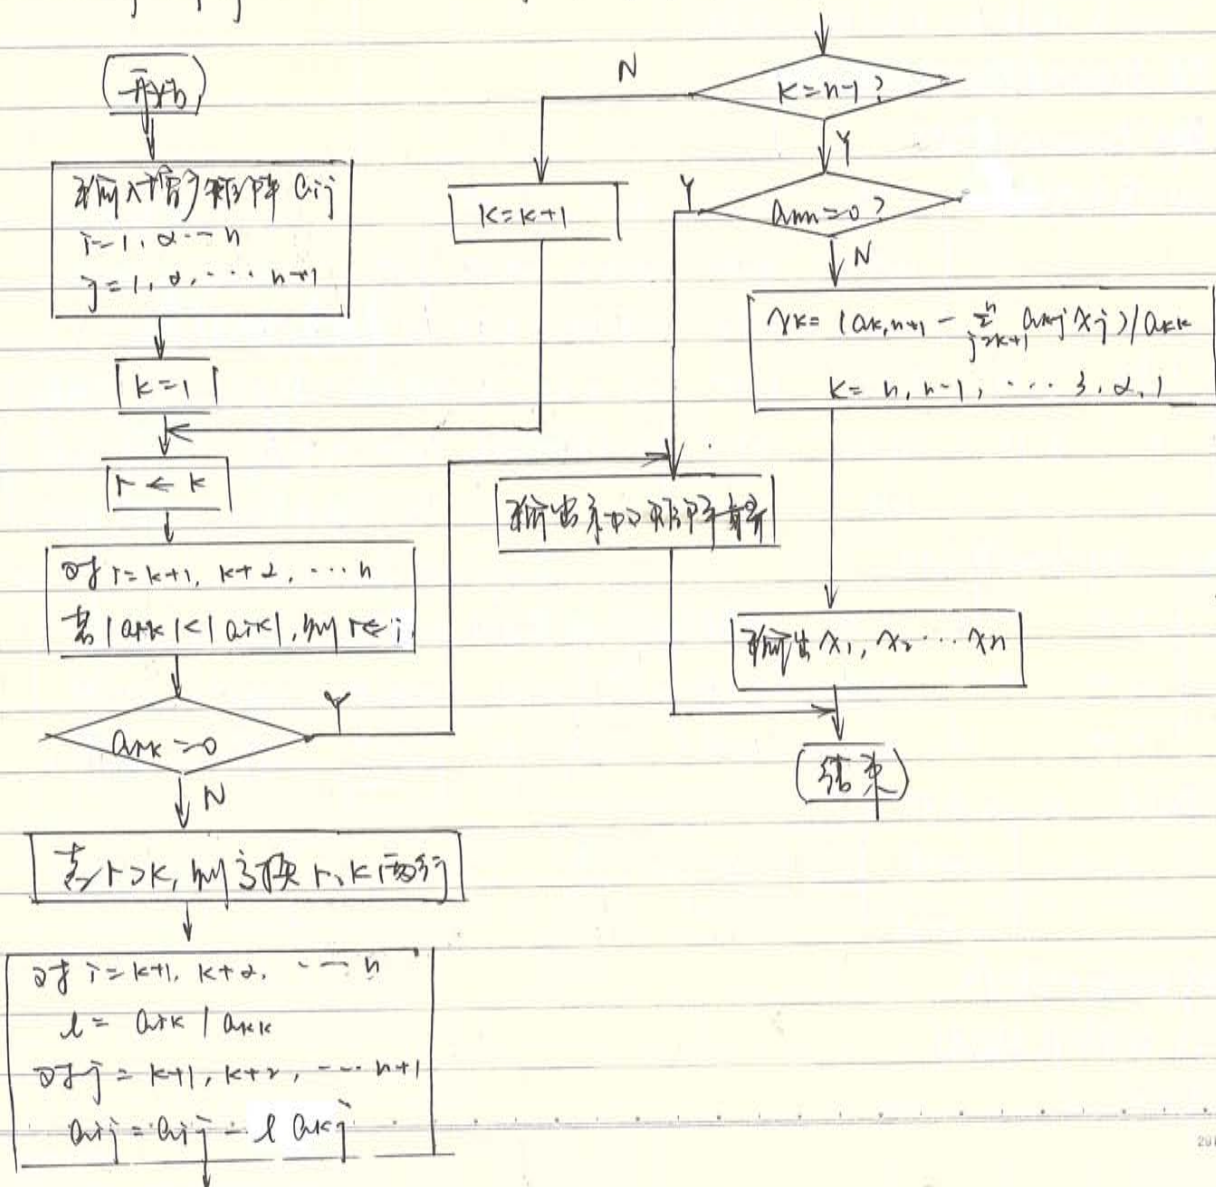 开始
输入增广矩阵 aij
i=1, 2 ... n
j=1, 2, ... n+1
k=1
r ← k
对 i=k+1, k+2, ... n
若 |ark|<|aik|, 则 r←i
ark=0
Y
N
若 r>k, 则交换 r、k两行
对 i=k+1, k+2, ... n
l= aik / akk
对 j=k+1, k+2, ... n+1
aij=aij-l akj
k=n-1?
N
Y
k=k+1
ann=0?
Y
N
xk=(ak,n+1 - ∑ akj xj)/akk
n
j=k+1
k=n, n-1, ... 3, 2, 1
输出系数矩阵奇异
输出 x1, x2 ... xn
结束